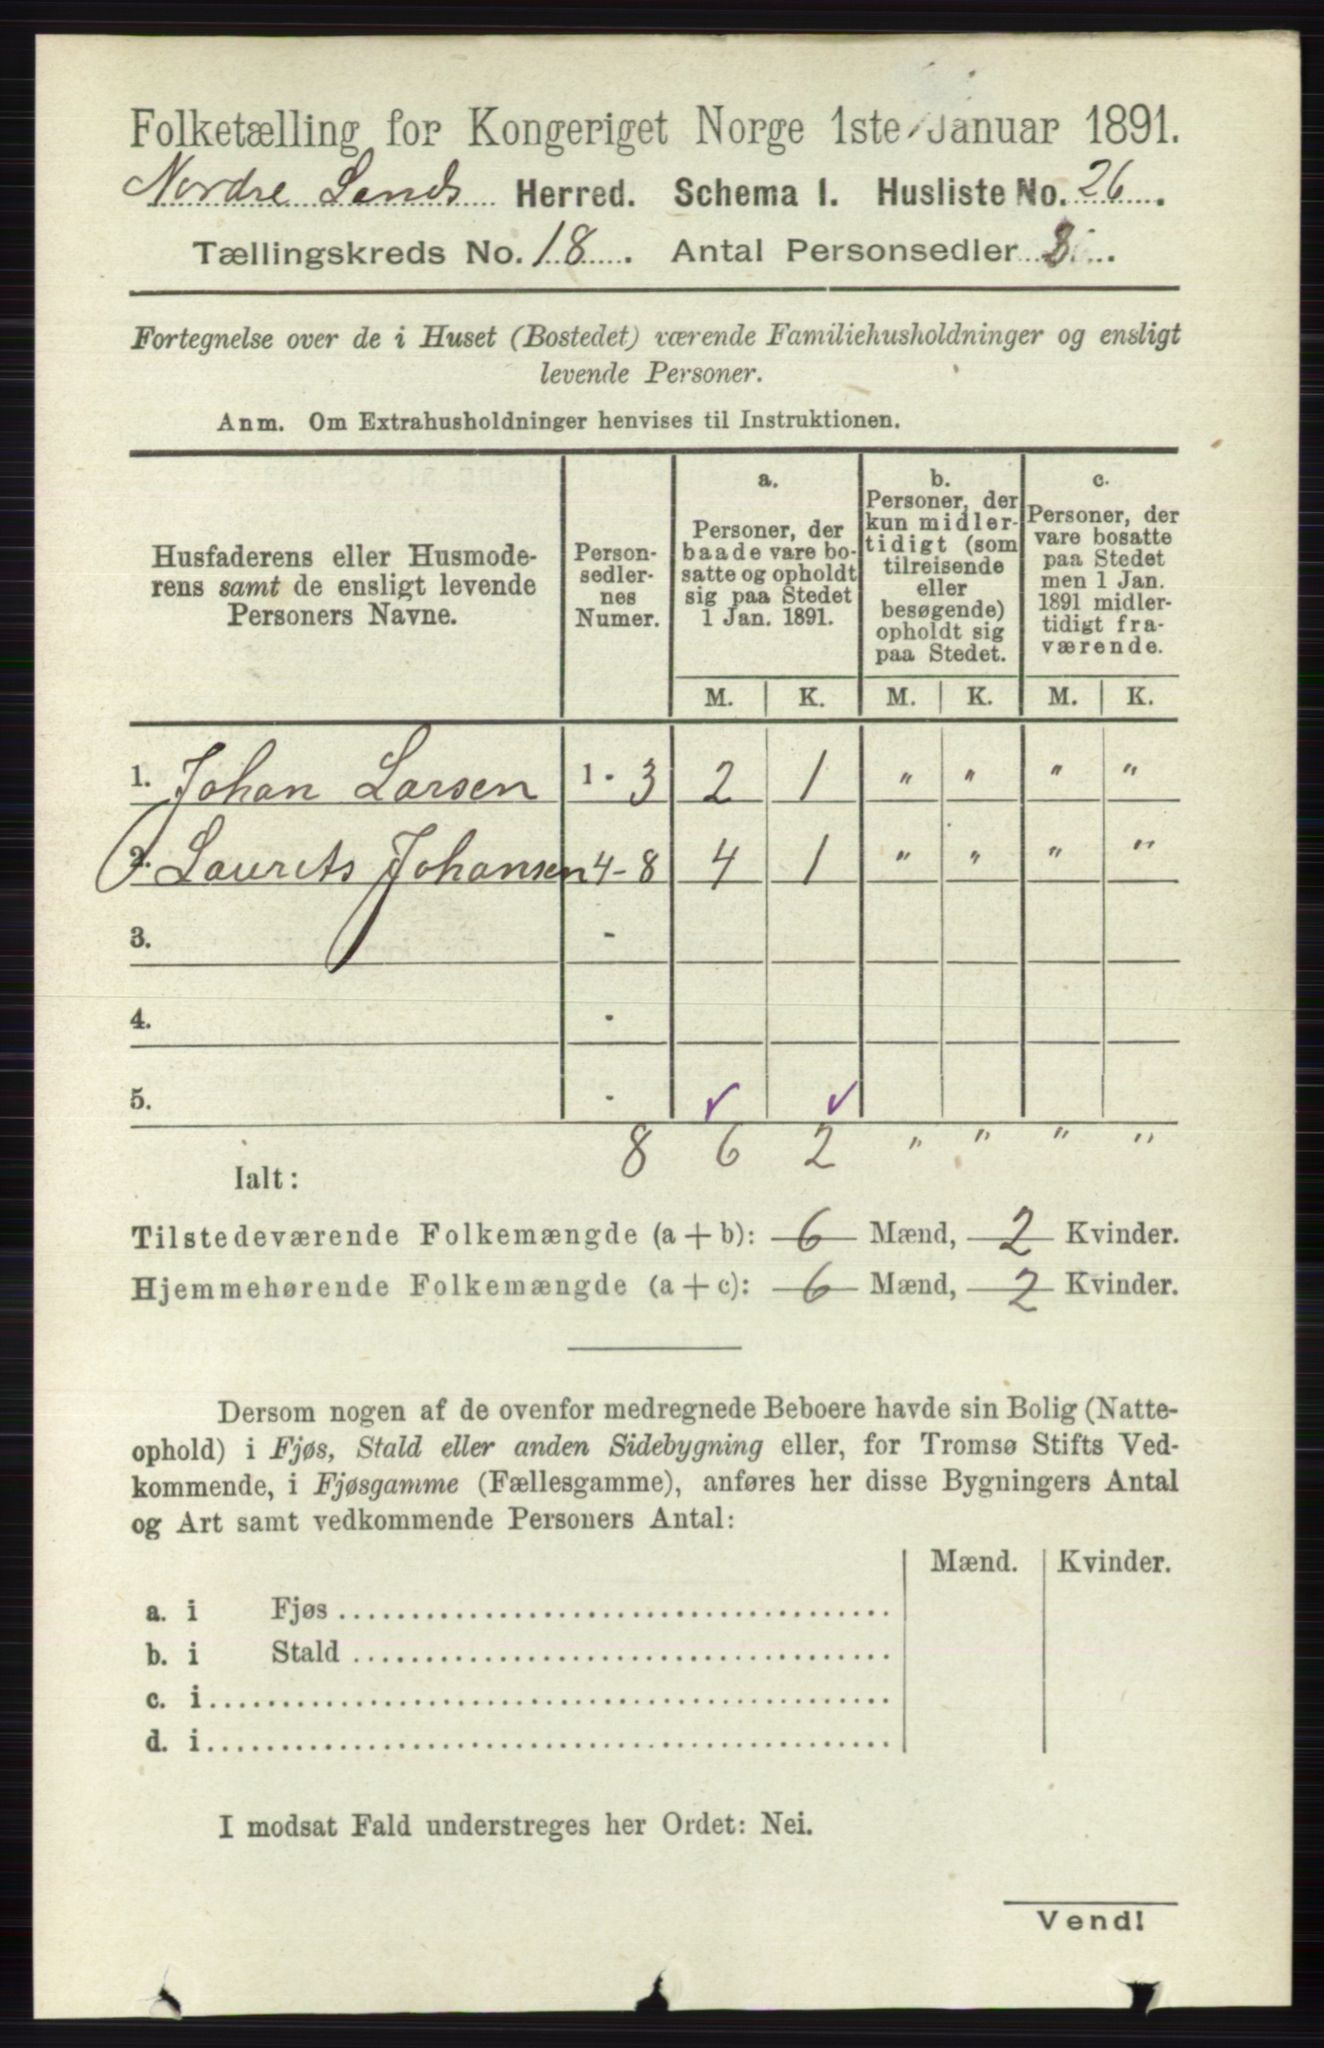 Folketælling for Kongeriget Norge 1ste Januar 1891.
Nordre Lands Herred. Schema I. Husliste No. 26.
Tællingskreds No. 18. Antal Personsedler 8.
Fortegnelse over de i Huset (Bostedet) værende Familiehusholdninger og ensligt
levende Personer.
Anm. Om Extrahusholdninger henvises til Instruktionen.
Husfaderens eller Husmode-
rens samt de ensligt levende
Personers Navne.
Person-
sedler-
nes
Numer.
a.
Personer, der
baade vare bo-
satte og opholdt
sig paa Stedet
1 Jan. 1891.
b.
Personer, der
kun midler-
tidigt (som
tilreisende
eller
besøgende)
opholdt sig
paa Stedet.
c.
Personer, der
vare bosatte
paa Stedet
men 1 Jan.
1891 midler-
tidigt fra-
værende.
M. K. M. K. M. K.
1. Johan Larsen 1 - 3 2 1 " " " "
2. Laurits Johansen 4-8 4 1 " " " "
3. -
4. -
5. -
8 6 2 " " " "
Ialt:
Tilstedeværende Folkemængde (a + b): 6 Mænd, 2 Kvinder.
Hjemmehørende Folkemængde (a + c): 6 Mænd, 2 Kvinder.
Dersom nogen af de ovenfor medregnede Beboere havde sin Bolig (Natte-
ophold) i Fjøs, Stald eller anden Sidebygning eller, for Tromsø Stifts Ved-
kommende, i Fjøsgamme (Fællesgamme), anføres her disse Bygningers Antal
og Art samt vedkommende Personers Antal:
Mænd. Kvinder.
a. i Fjøs
b. i Stald
c. i
d. i
I modsat Fald understreges her Ordet: Nei.
Vend!